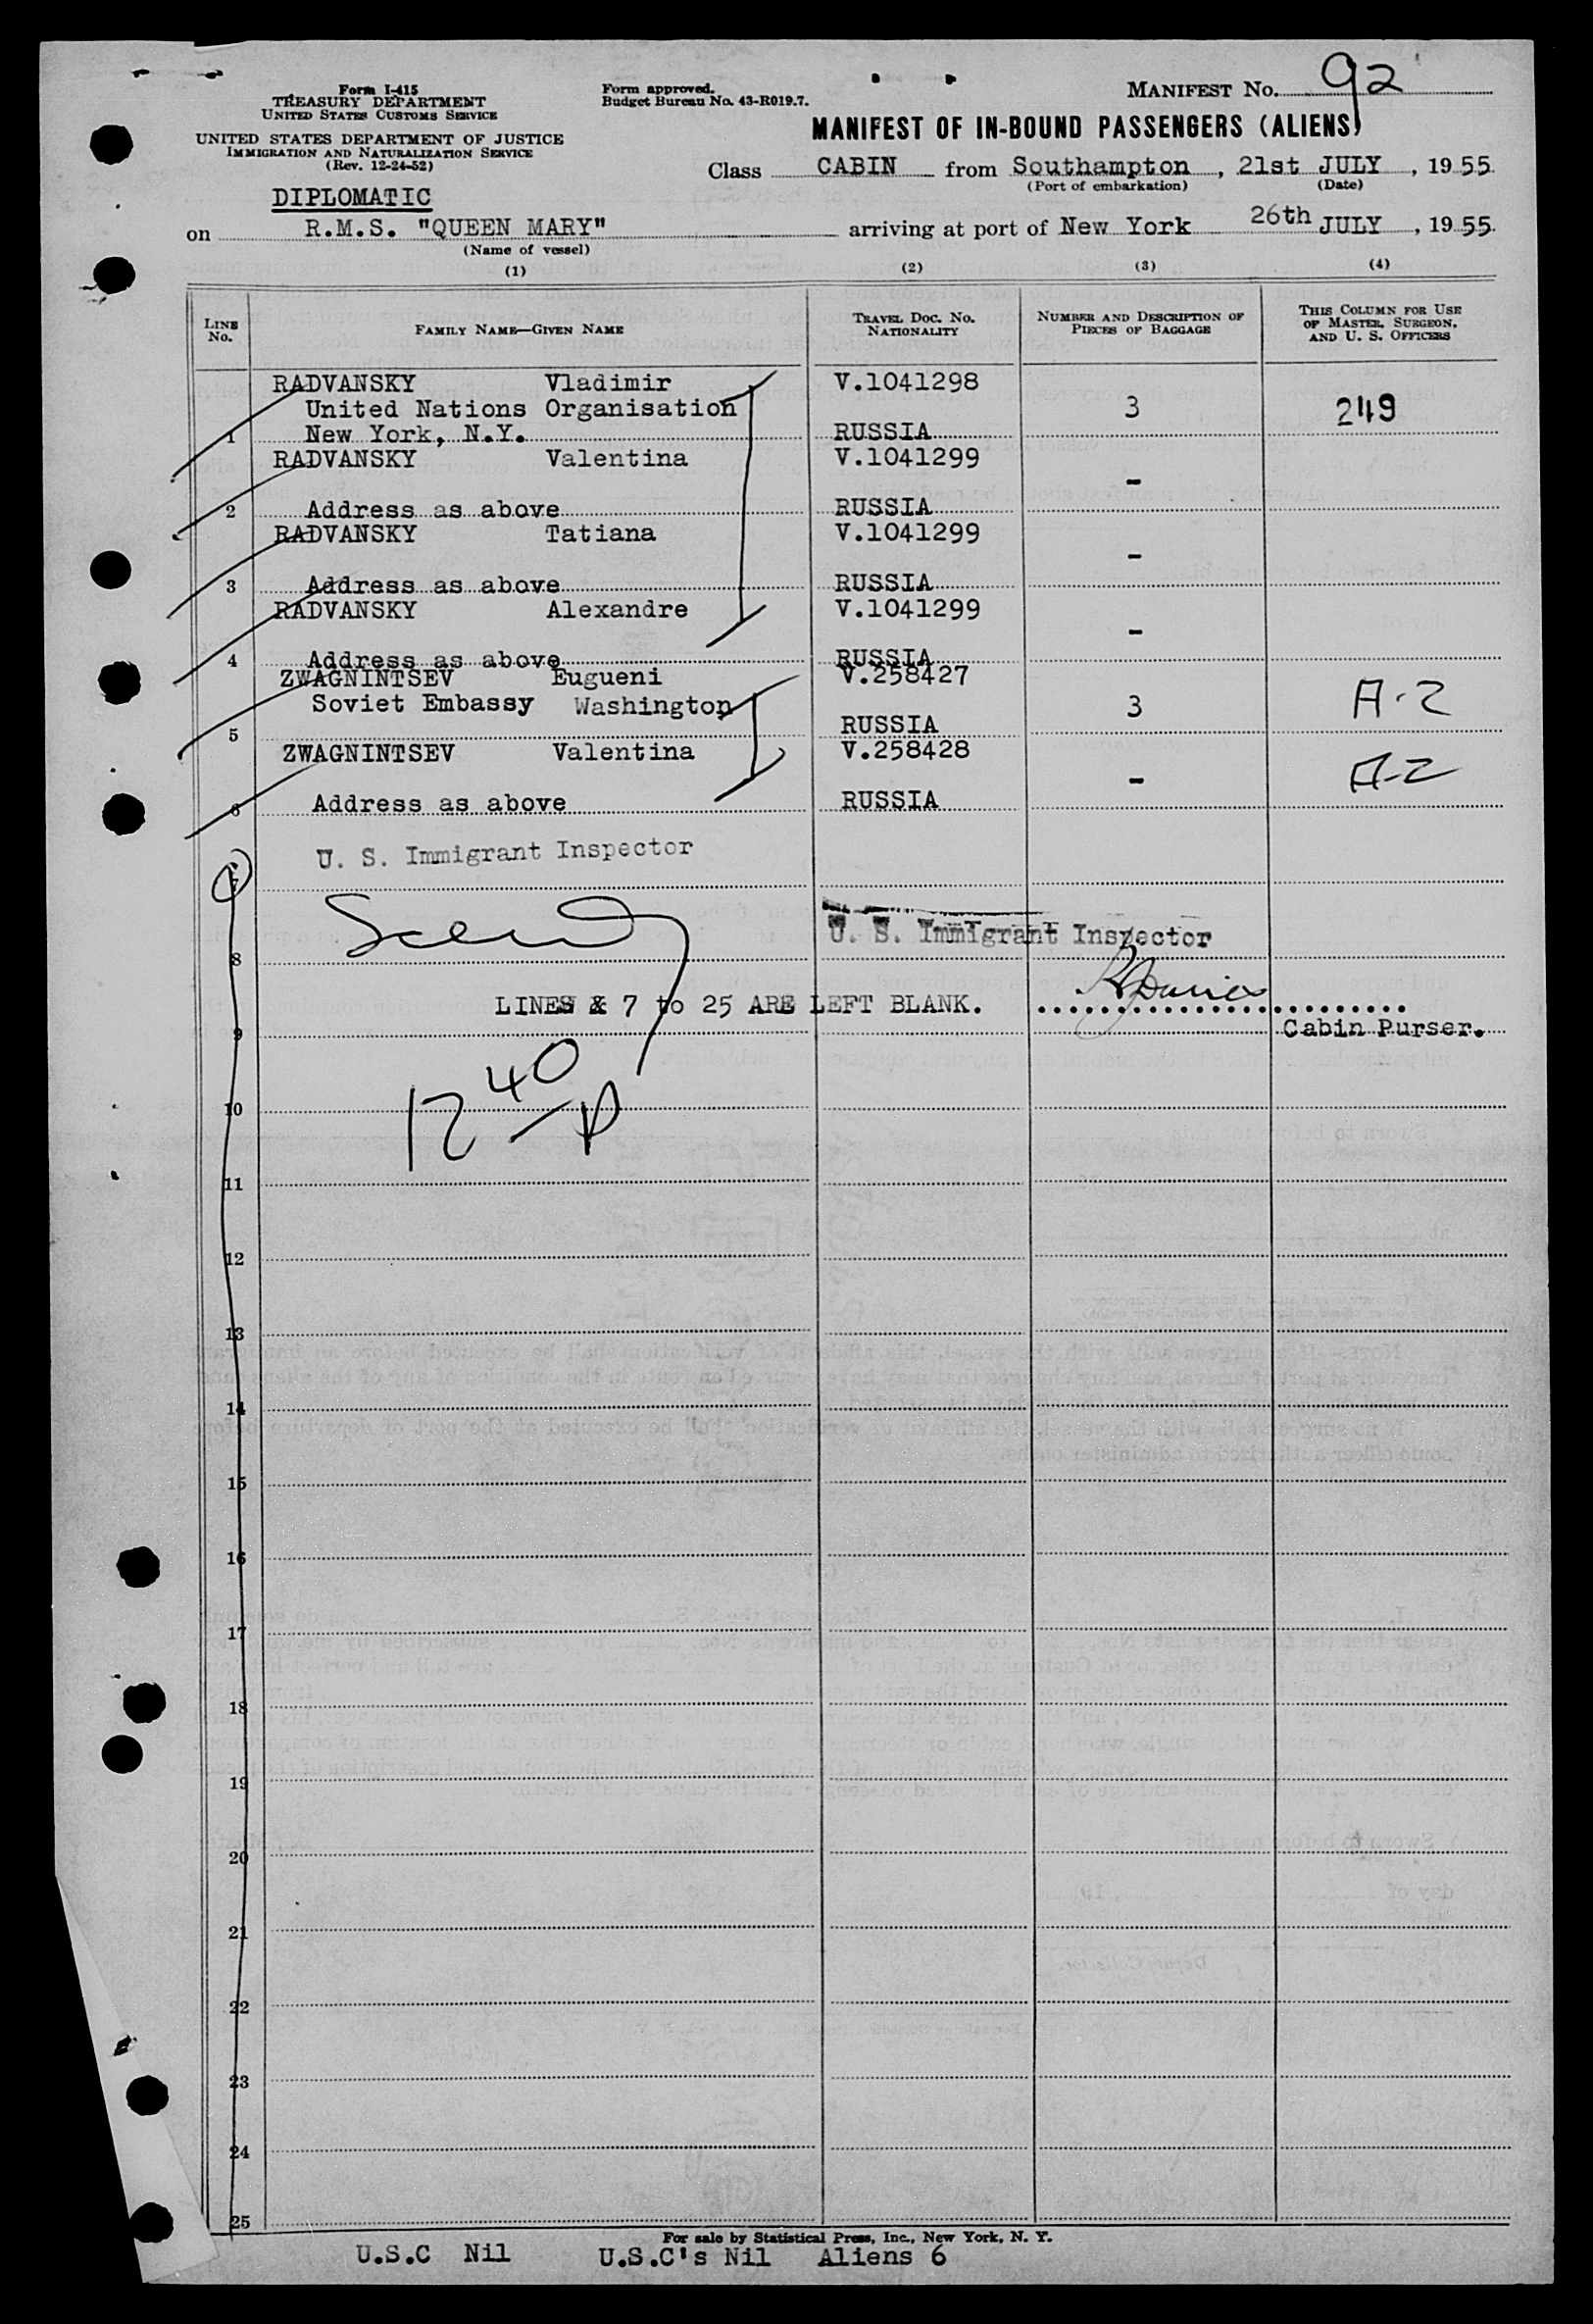 Form I-415
TREASURY DEPARTMENT
UNITED STATES CUSTOMS SERVICE
UNITED STATES DEPARTMENT OF JUSTICE
IMMIGRATION AND NATURALIZATION SERVICE
(Rev. 12-24-52)
Form approved.
Budget Bureau No. 43-R019.7.
MANIFEST No. 92
MANIFEST OF IN-BOUND PASSENGERS (ALIENS)
Class CABIN from Southampton, 21st JULY, 1955
(Port of embarkation) (Date)
DIPLOMATIC
on R.M.S. "QUEEN MARY" arriving at port of New York 26th JULY, 1955
(Name of vessel)
(1) (2) (3) (4)
LINE No. FAMILY NAME—GIVEN NAME TRAVEL DOC. No. NATIONALITY NUMBER AND DESCRIPTION OF PIECES OF BAGGAGE THIS COLUMN FOR USE OF MASTER, SURGEON, AND U. S. OFFICERS
RADVANSKY Vladimir V.1041298
United Nations Organisation 3 249
1 New York, N.Y. RUSSIA
RADVANSKY Valentina V.1041299
-
2 Address as above RUSSIA
RADVANSKY Tatiana V.1041299
-
3 Address as above RUSSIA
RADVANSKY Alexandre V.1041299
-
4 Address as above RUSSIA
ZWAGNINTSEV Eugueni V.258427
Soviet Embassy Washington 3 A-2
5 RUSSIA
ZWAGNINTSEV Valentina V.258428
- A-2
6 Address as above RUSSIA
U. S. Immigrant Inspector
7
U. S. Immigrant Inspector
8
LINES & 7 to 25 ARE LEFT BLANK.
Cabin Purser.
9
12 40 p
10
11
12
13
14
15
16
17
18
19
20
21
22
23
24
25
For sale by Statistical Press, Inc., New York, N. Y.
U.S.C Nil U.S.C's Nil Aliens 6